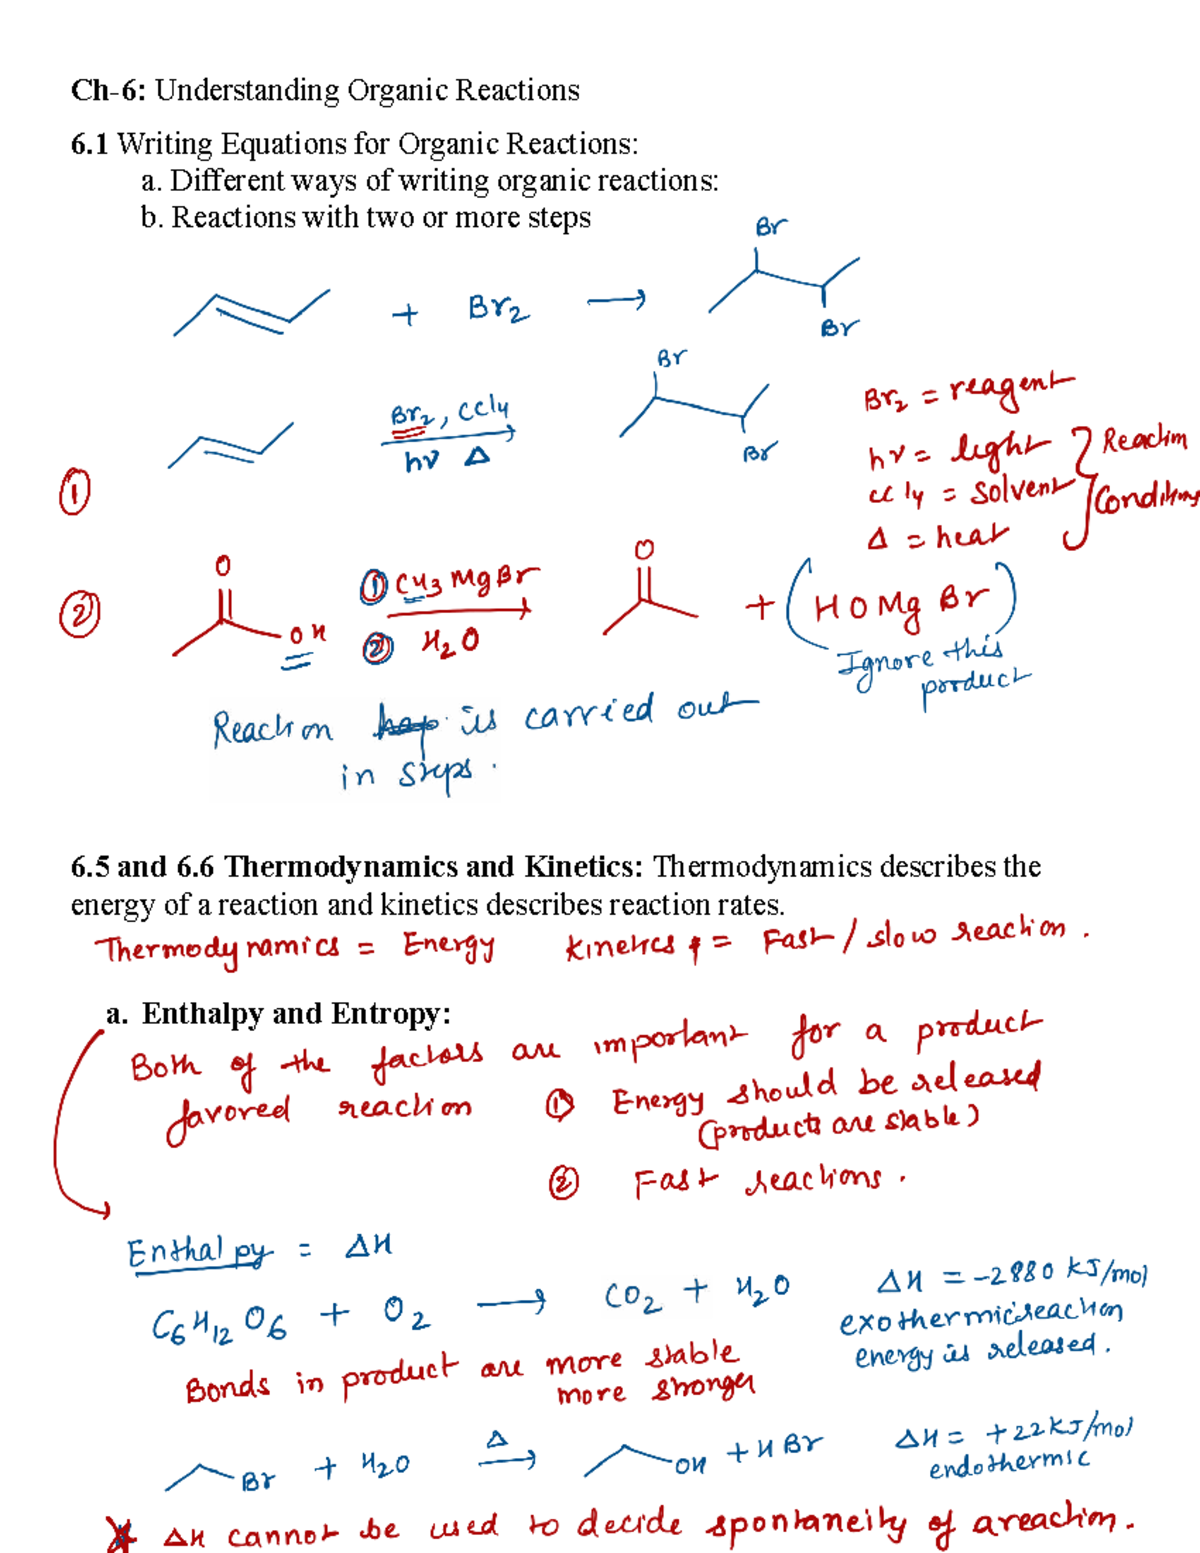 Ch-6: Understanding Organic Reactions
6.1 Writing Equations for Organic Reactions:
a. Different ways of writing organic reactions:
b. Reactions with two or more steps
Br
+ Br2 →
Br
Br
Br2, CCl4
hν Δ
Br
Br2 = reagent
hν = light
CCl4 = Solvent
Δ = heat
Reaction
Conditions
①
②
O
OH
① CH3MgBr
② H2O
O
+ (HOMgBr)
Ignore this
product
Reaction hap is carried out
in steps.
6.5 and 6.6 Thermodynamics and Kinetics: Thermodynamics describes the
energy of a reaction and kinetics describes reaction rates.
Thermodynamics = Energy Kinetics = Fast / slow reaction.
a. Enthalpy and Entropy:
Both of the factors are important for a product
favored reaction ① Energy should be released
(products are stable)
② Fast reactions.
Enthalpy = ΔH
C6H12O6 + O2 → CO2 + H2O ΔH = -2880 kJ/mol
exothermic reaction
energy is released.
Bonds in product are more stable
more stronger
Br + H2O Δ → OH + HBr ΔH = +22kJ/mol
endothermic
* ΔH cannot be used to decide spontaneity of a reaction.